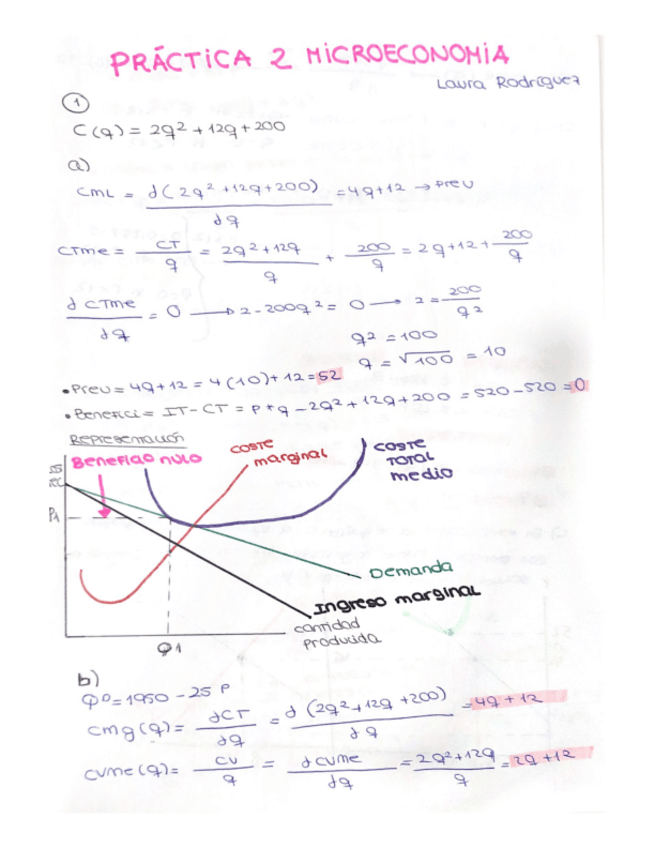 PRÁCTICA 2 MICROECONOMÍA
Laura Rodríguez
1
C(q) = 2q² + 12q + 200
a)
CML = d(2q² + 12q + 200) / dq = 4q + 12 → Preu
CTme = CT / q = 2q² + 12q / q + 200 / q = 2q + 12 + 200 / q
d CTme / dq = 0 → 2 - 200q² = 0 → 2 = 200 / q²
q² = 100
q = √100 = 10
• Preu = 4q + 12 = 4(10) + 12 = 52
• Benefici = IT - CT = P * q - 2q² + 12q + 200 = 520 - 520 = 0
Representación
Beneficio nulo
COSTE marginal
COSTE TOTAL medio
PA
Demanda
Ingreso marginal
cantidad producida
Q1
b)
Qᴰ = 1950 - 25 P
cmg(q) = dCT / dq = d(2q² + 12q + 200) / dq = 4q + 12
cvme(q) = CV / q = d cvme / dq = 2q² + 12q / q = 2q + 12